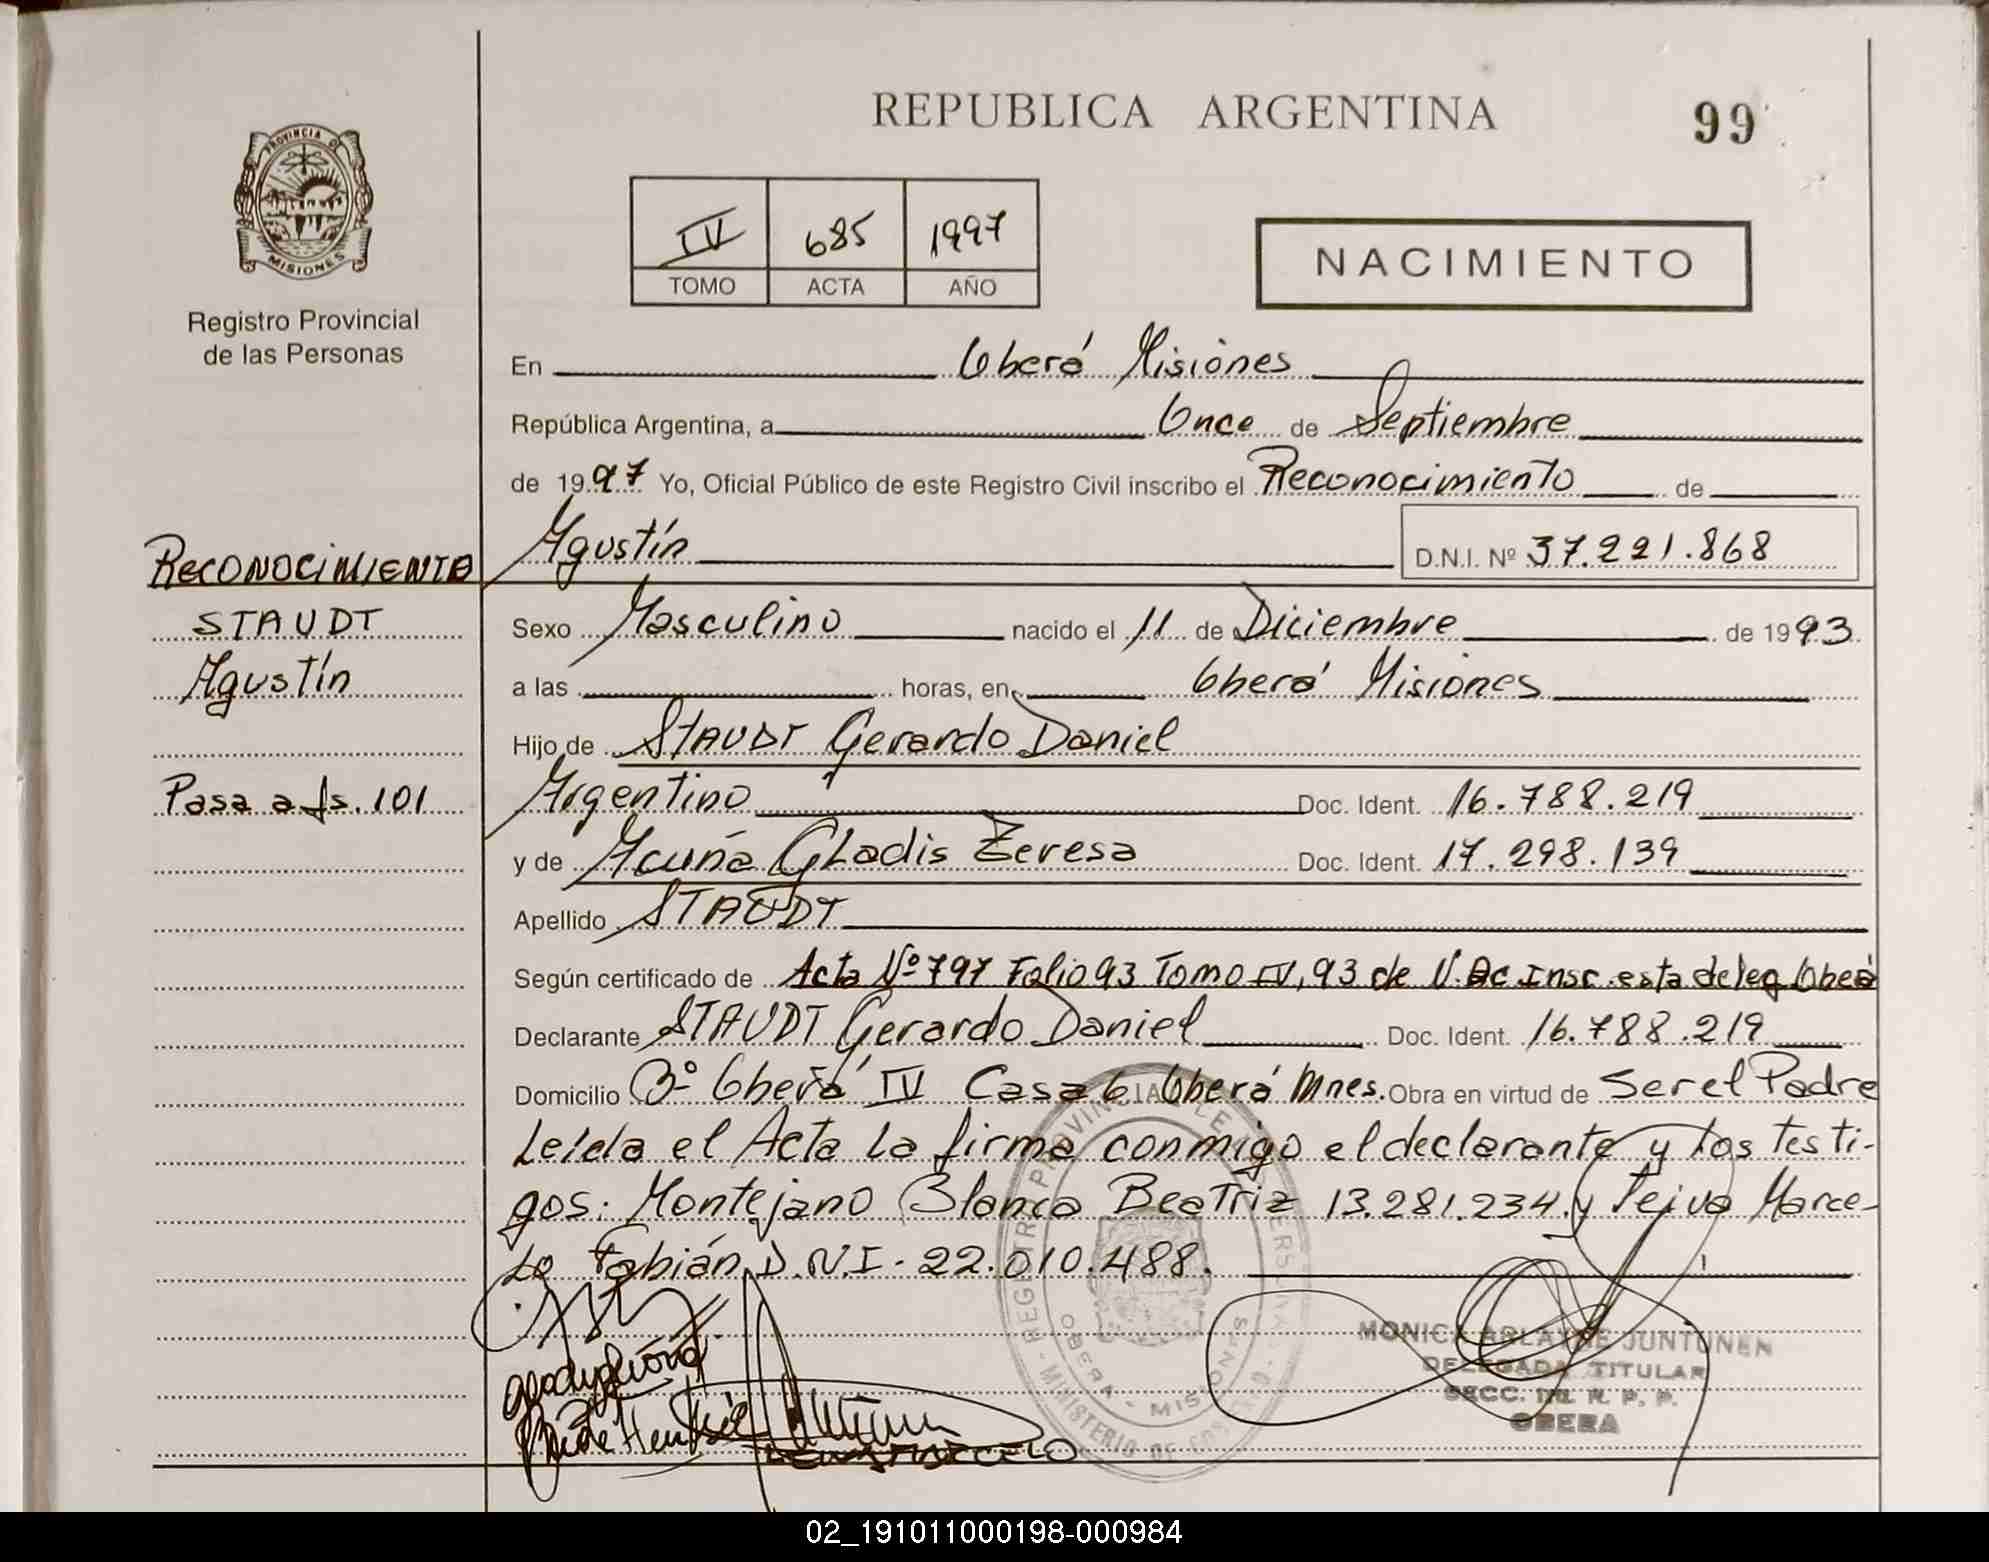 REPUBLICA ARGENTINA
99
PROVINCIA DE
MISIONES
Registro Provincial
de las Personas
IV 685 1997
TOMO ACTA AÑO
NACIMIENTO
En Oberá Misiones
República Argentina, a Once de Septiembre
de 1997 Yo, Oficial Público de este Registro Civil inscribo el Reconocimiento de
Agustín D.N.I. Nº 37.221.868
RECONOCIMIENTO
STAUDT
Agustín
Pasa a fs. 101
Sexo Masculino nacido el 11 de Diciembre de 1993
a las horas, en Oberá Misiones
Hijo de STAUDT Gerardo Daniel
Argentino Doc. Ident. 16.788.219
y de Acuña Gladis Teresa Doc. Ident. 17.298.139
Apellido STAUDT
Según certificado de Acta Nº 797 Folio 93 Tomo IV, 93 de N. Ac Insc. esta deleg Oberá
Declarante STAUDT Gerardo Daniel Doc. Ident. 16.788.219
Domicilio Bº Oberá IV Casa 6 Oberá Mnes. Obra en virtud de Ser el Padre
Leída el Acta la firma conmigo el declarante y los testi-
gos: Montejano Blanca Beatriz 13.281.234 y Leiva Marce-
lo Fabián D.N.I. 22.010.488.
MONICA JUNTUNEN
DELEGADA TITULAR
SECC. R. P. P.
OBERA
OBERA - MISIONES
MINISTERIO DE
02_191011000198-000984